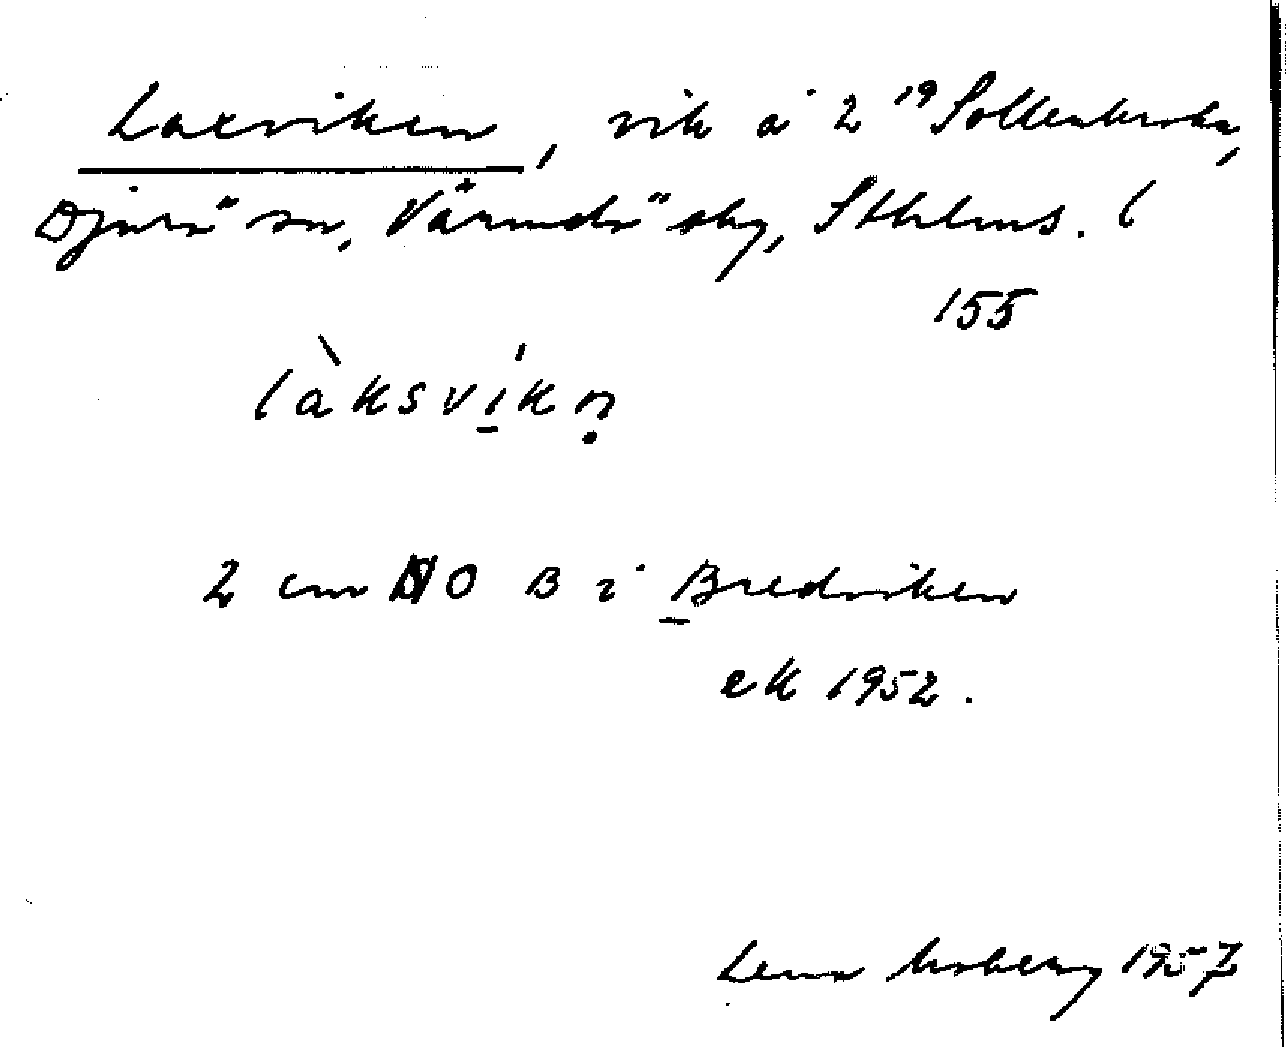 Laxviken, vik å 2 19 Sollenkroka,
Djurö sn, Värmdö skg, Sthlms. l
155
làksvíkṇ
2 cm NO B i Bredviken
ek 1952.
Lena Moberg 1957